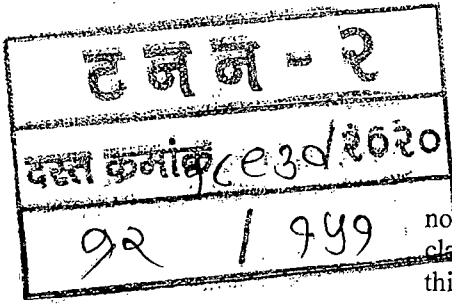 ट न न - २
दस्त क्रमांक २०२०
१२ / १५१
no
cla
thi